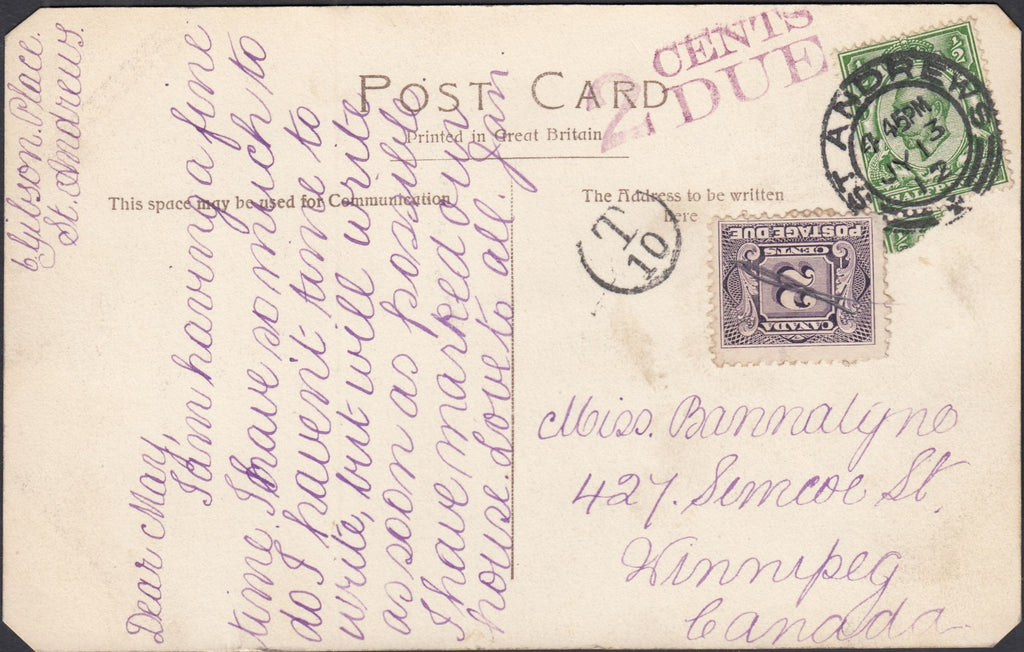 6 Gibson. Place.
St. Andrews.
Dear May,
I am having a fine
time. I have so much to
do I haven't time to
write, but will write
as soon as possible
I have marked our
house. Love to all. Jan
POST CARD
Printed in Great Britain
This space may be used for Communication
The Address to be written
here
2 CENTS
DUE
ST ANDREWS
4 45PM
JY 13
12
T
10
POSTAGE DUE
CENTS
2
CANADA
1/2
HALF
Miss. Bannalyne
427. Simcoe St.
Winnipeg
Canada